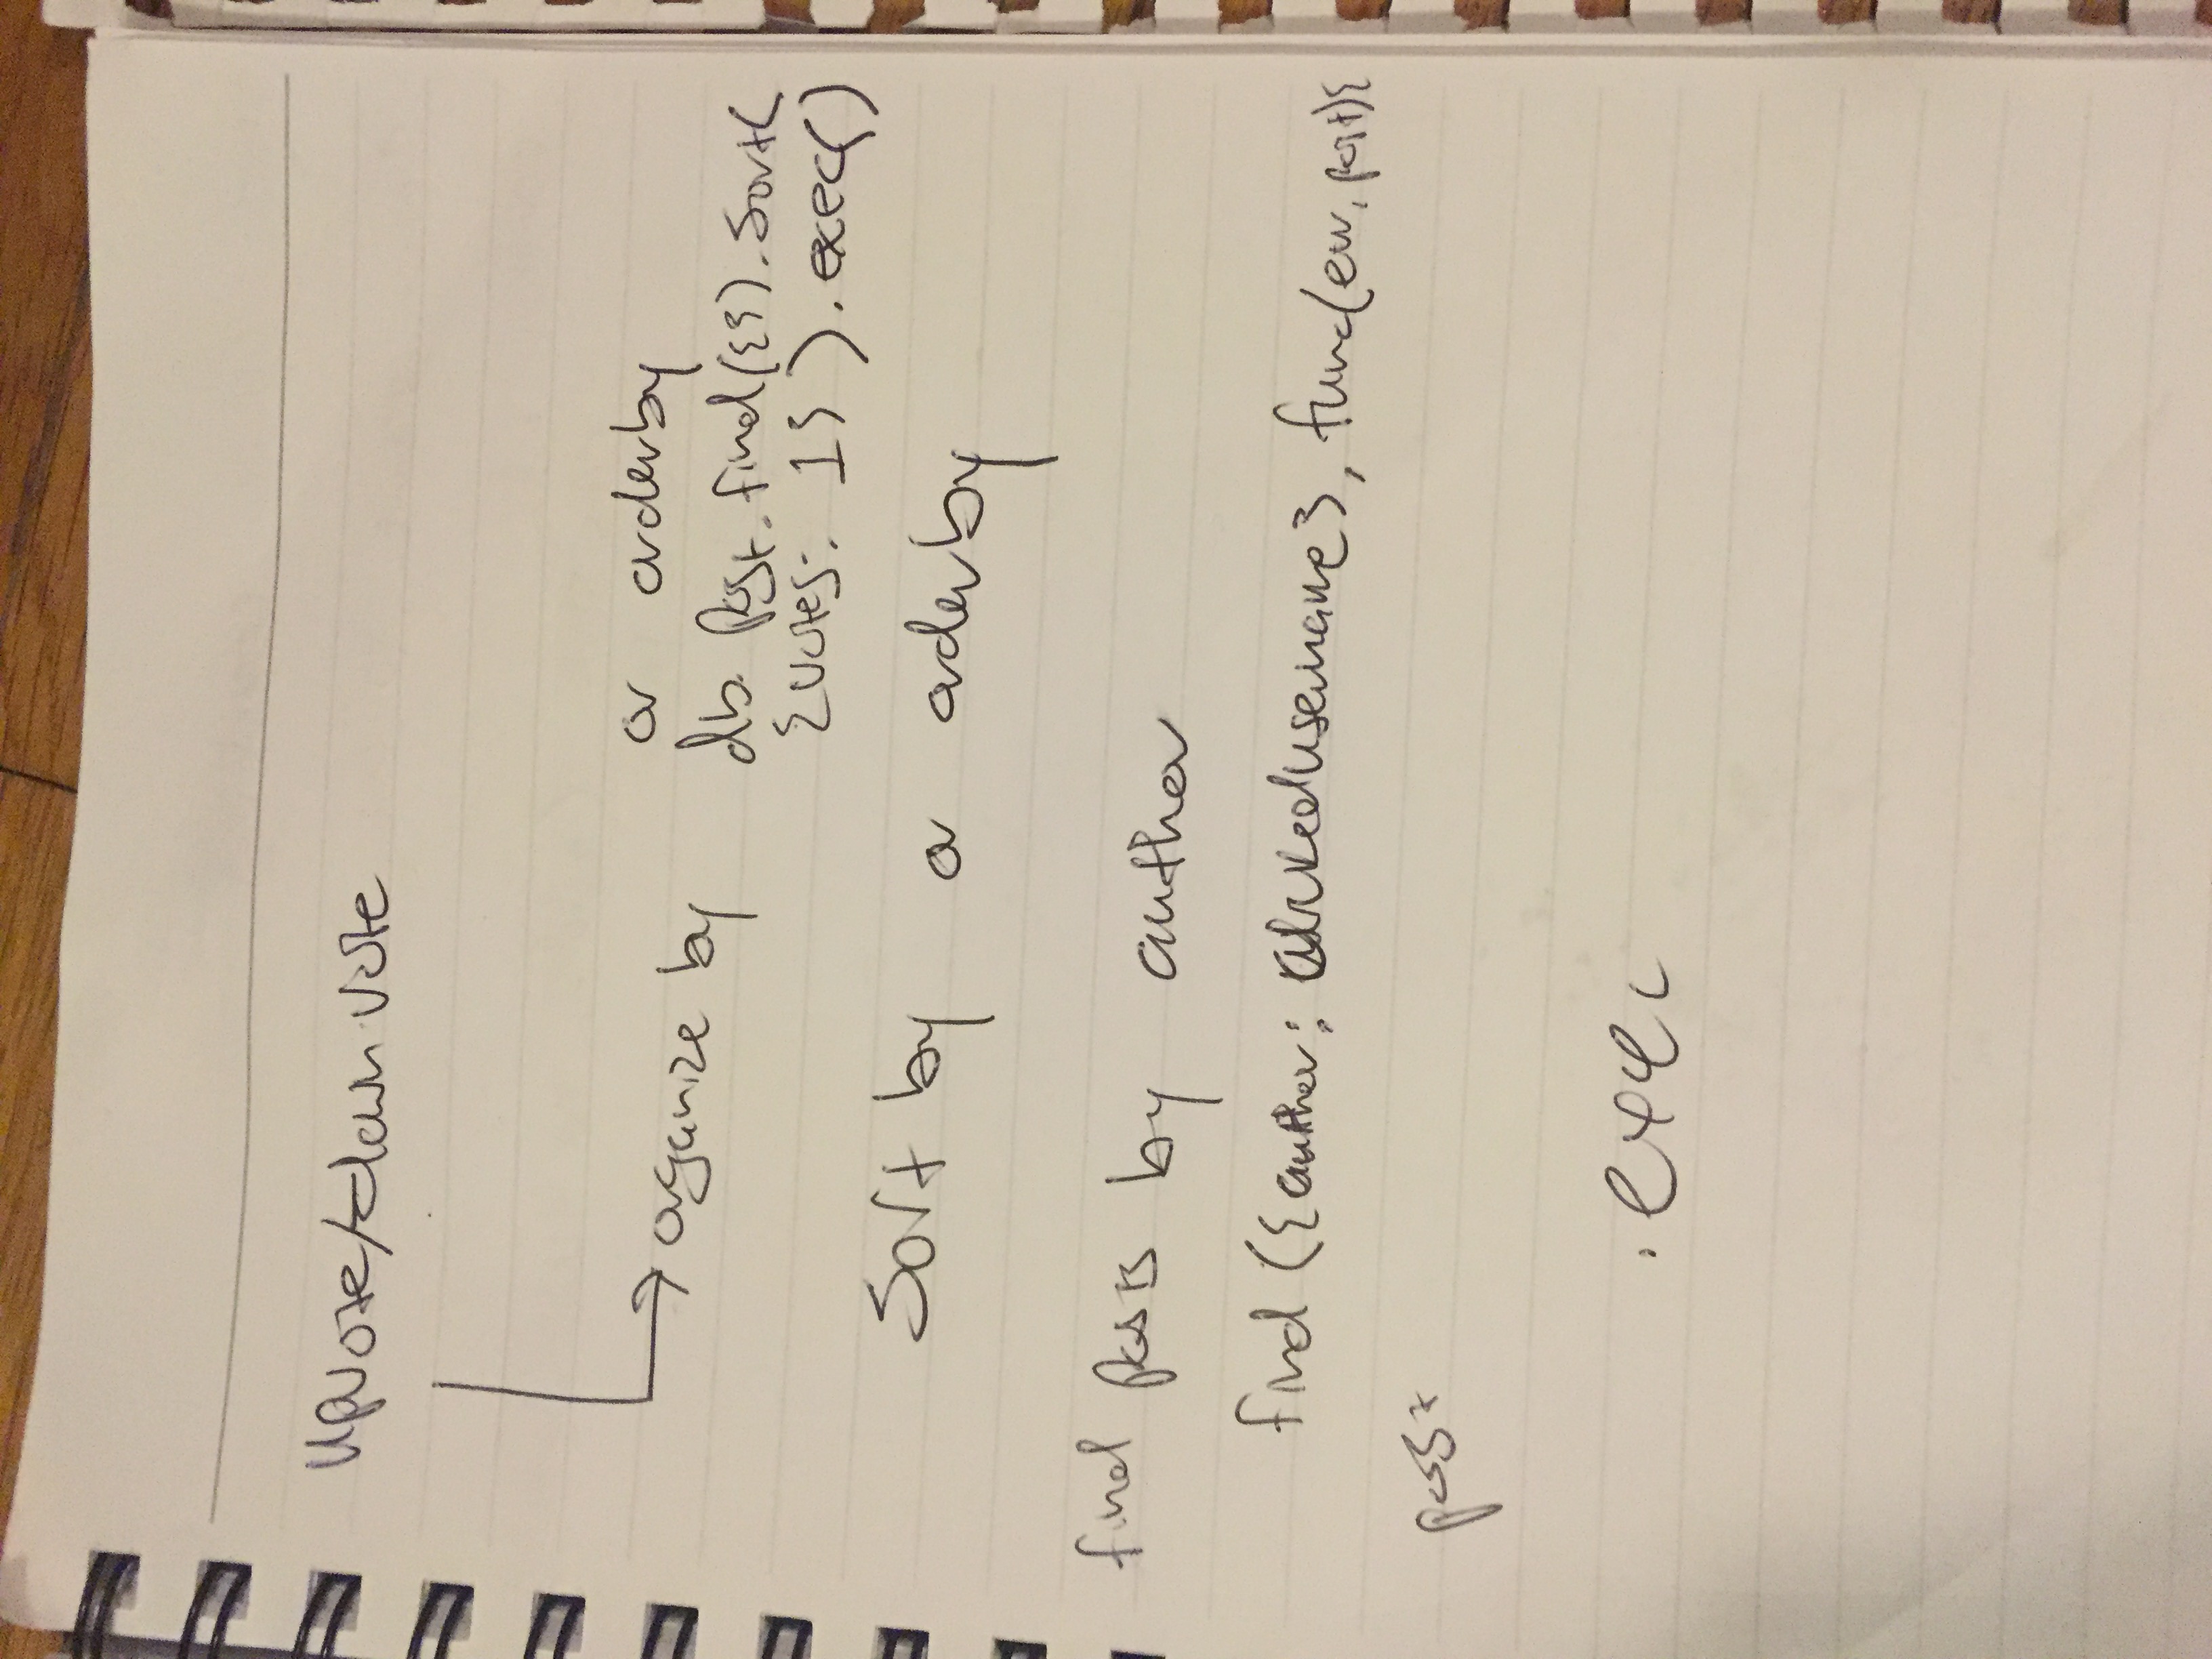 upvote/down vote
→ organize by or orderby
db.post.find({}).sort(
{votes: 1}).exec()
Sort by or orderby
find posts by author
find({author: clickedusername}, func(err, post){
post
.exec